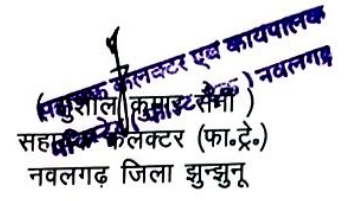 सहायक कलक्टर एवं कार्यपालक
मजिस्ट्रेट (फास्ट ट्रेक) नवलगढ़
(सुशील कुमार सैनी)
सहायक कलक्टर (फा.ट्रे.)
नवलगढ़ जिला झुन्झुनू